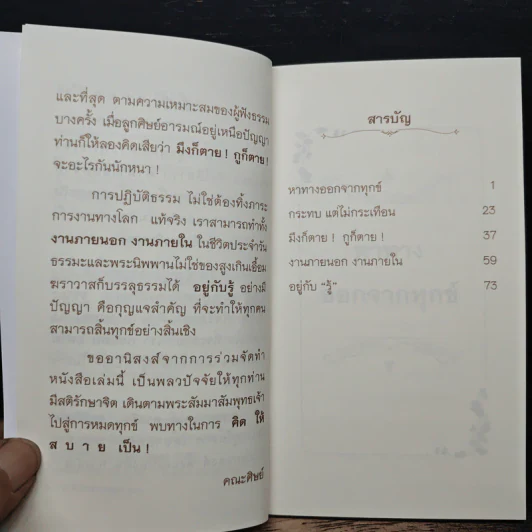 และที่สุด ตามความเหมาะสมของผู้ฟังธรรม
บางครั้ง เมื่อลูกศิษย์อารมณ์อยู่เหนือปัญญา
ท่านก็ให้ลองคิดเสียว่า มึงก็ตาย! กูก็ตาย!
จะอะไรกันนักหนา!
การปฏิบัติธรรม ไม่ใช่ต้องทิ้งภาระ
การงานทางโลก แท้จริง เราสามารถทำทั้ง
งานภายนอก งานภายใน ในชีวิตประจำวัน
ธรรมะและพระนิพพานไม่ใช่ของสูงเกินเอื้อม
ฆราวาสก็บรรลุธรรมได้ อยู่กับรู้ อย่างมี
ปัญญา คือกุญแจสำคัญ ที่จะทำให้ทุกคน
สามารถสิ้นทุกข์อย่างสิ้นเชิง
ขออานิสงส์จากการร่วมจัดทำ
หนังสือเล่มนี้ เป็นพลวปัจจัยให้ทุกท่าน
มีสติรักษาจิต เดินตามพระสัมมาสัมพุทธเจ้า
ไปสู่การหมดทุกข์ พบทางในการ คิด ให้
ส บ า ย เป็น!
คณะศิษย์
สารบัญ
หาทางออกจากทุกข์ 1
กระทบ แต่ไม่กระเทือน 23
มึงก็ตาย! กูก็ตาย! 37
งานภายนอก งานภายใน 59
อยู่กับ "รู้" 73